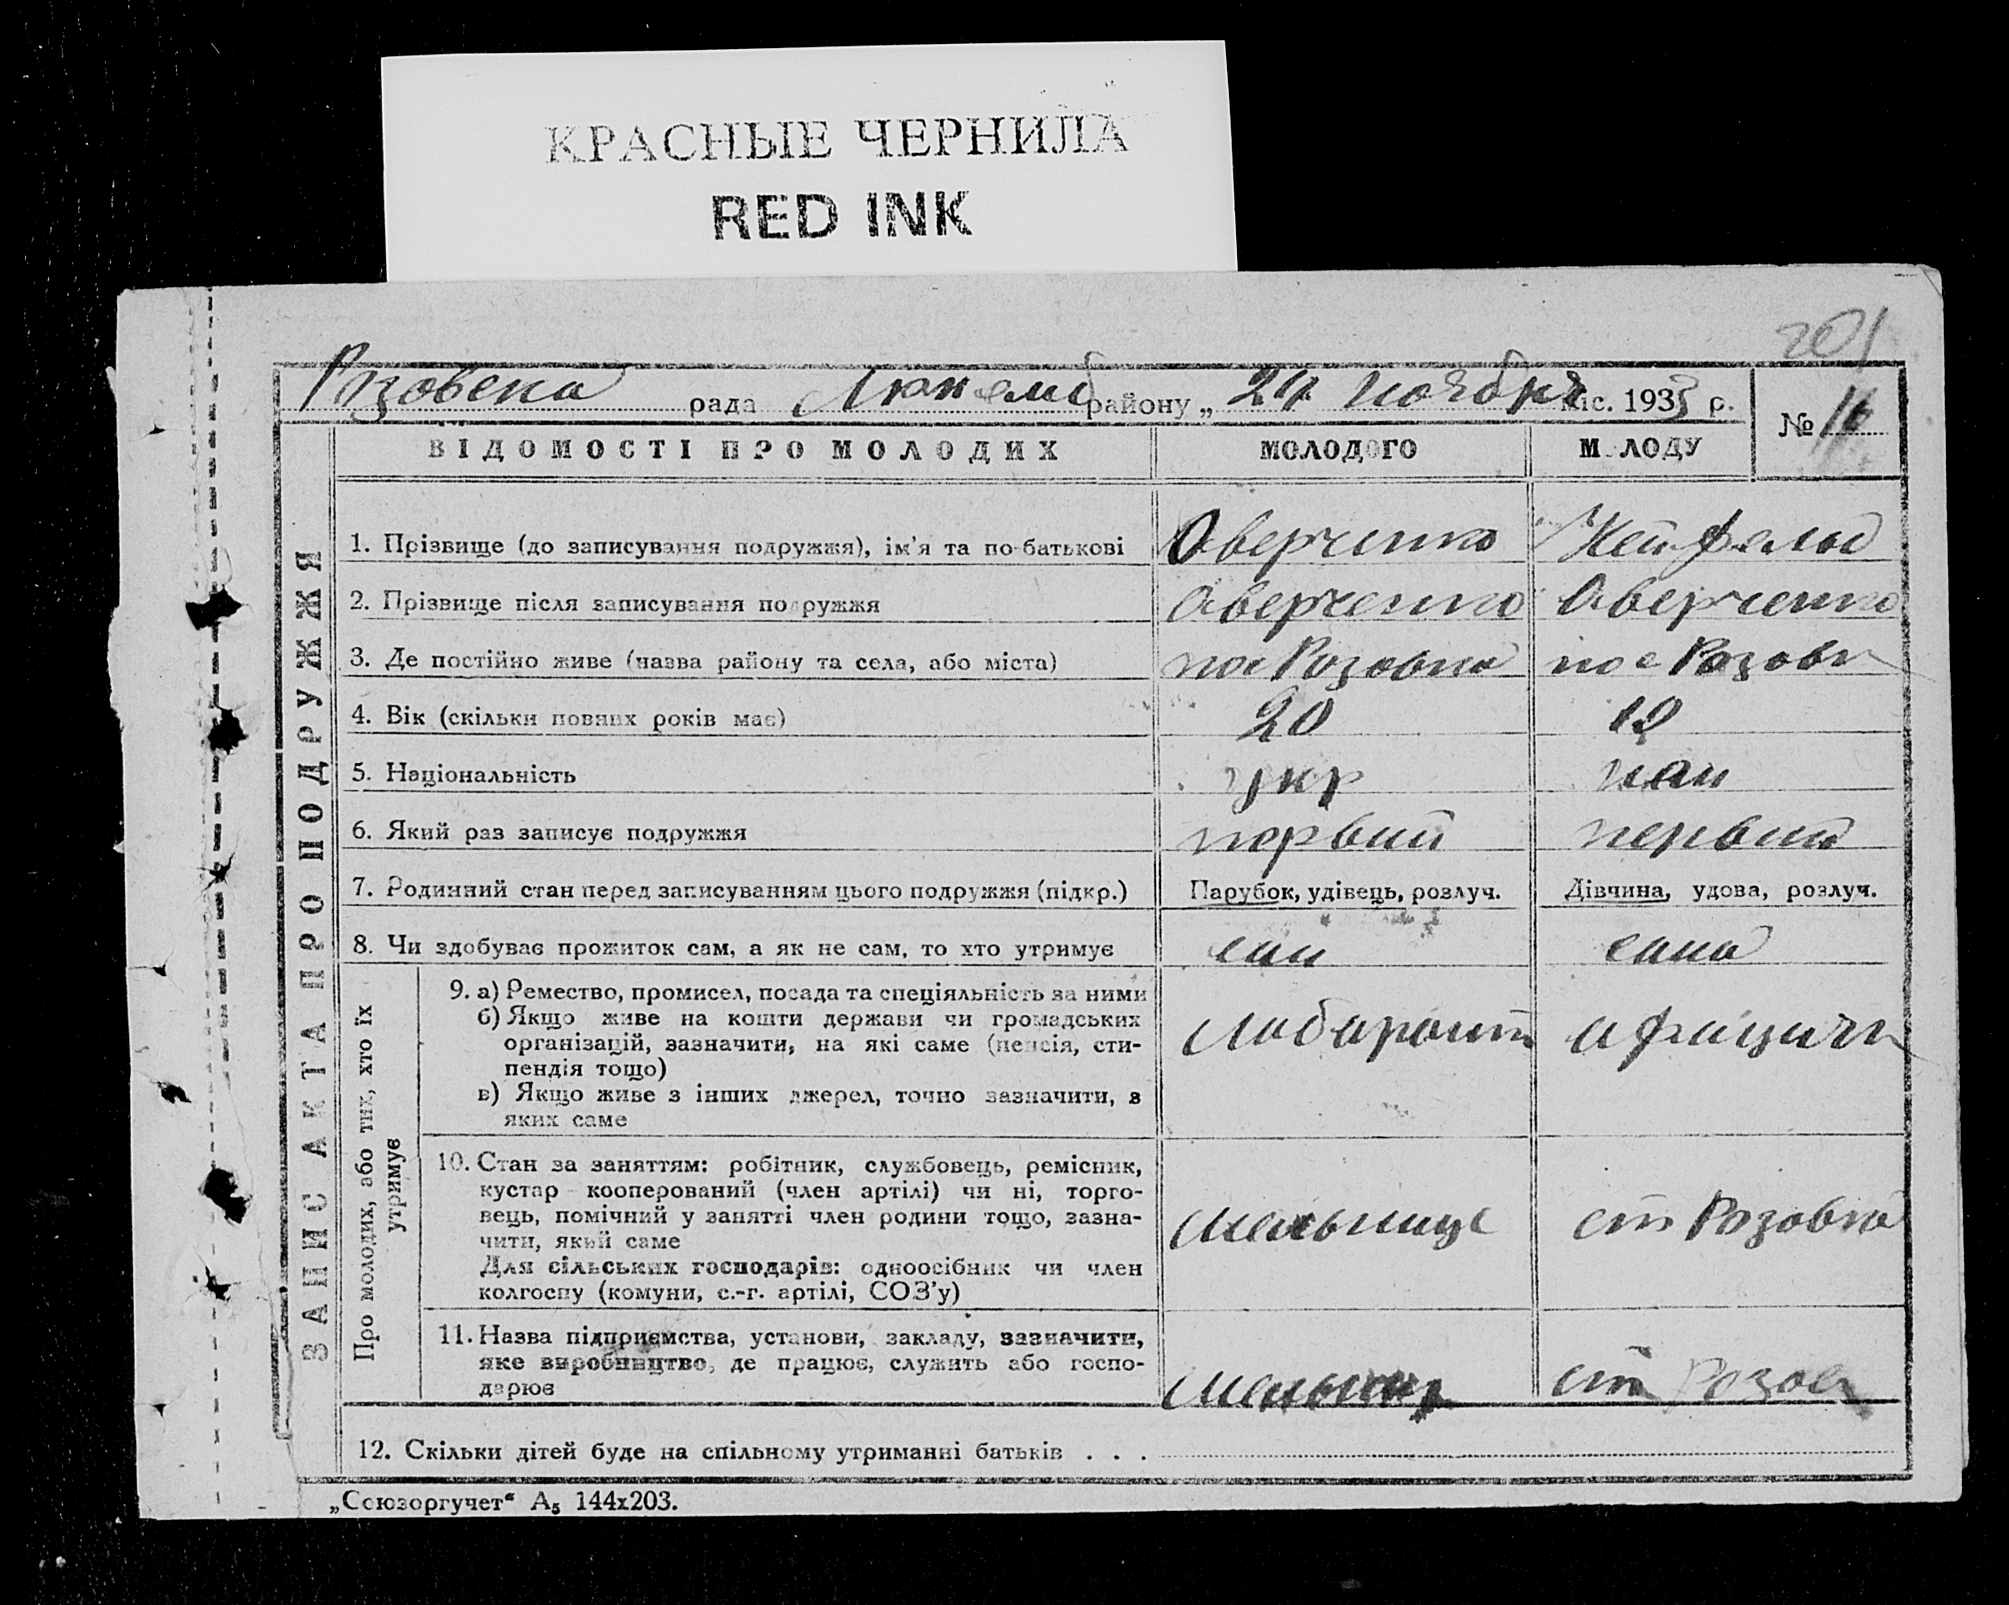 КРАСНЫЕ ЧЕРНИЛА
RED INK
201
Розовска рада Люксемб району „ 24 ноября міс. 1933 р.
№ 16
ВІДОМОСТІ ПРО МОЛОДИХ МОЛОДОГО МОЛОДУ
ЗАПИС АКТА ПРО ПОДРУЖЖЯ
1. Прізвище (до записування подружжя), ім’я та по-батькові Аверченко Нейфельд
2. Прізвище після записування подружжя Аверченко Аверченко
3. Де постійно живе (назва району та села, або міста) пос Розовка пос Розовк
4. Вік (скільки повних років має) 20 19
5. Національність укр нем
6. Який раз записує подружжя первий первий
7. Родинний стан перед записуванням цього подружжя (підкр.) Парубок, удівець, розлуч. Дівчина, удова, розлуч.
8. Чи здобуває прожиток сам, а як не сам, то хто утримує сам сама
Про молодих, або тих, хто їх
утримує
9. а) Ремество, промисел, посада та спеціяльність за ними
б) Якщо живе на кошти держави чи громадських
організацій, зазначити, на які саме (пенсія, сти-
пендія тощо)
в) Якщо живе з інших джерел, точно зазначити, з
яких саме
Лаборант
10. Стан за заняттям: робітник, службовець, ремісник,
кустар кооперований (член артілі) чи ні, торго-
вець, помічний у занятті член родини тощо, зазна-
чити, який саме
Для сільських господарів: одноосібник чи член
колгоспу (комуни, с.-г. артілі, СОЗ’у)
мельнице ст Розовка
11. Назва підприємства, установи, закладу, зазначити,
яке виробництво, де працює, служить або госпо-
дарює
ст Розов
12. Скільки дітей буде на спільному утриманні батьків . . .
„Союзоргучет“ А5 144х203.